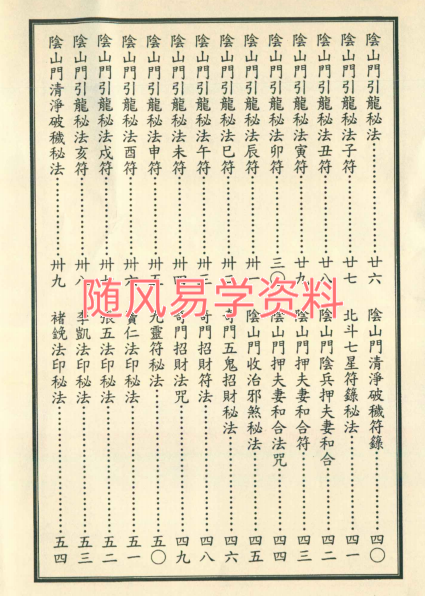 陰山門引龍秘法⋯⋯廿六
陰山門引龍秘法子符⋯⋯廿七
陰山門引龍秘法丑符⋯⋯廿八
陰山門引龍秘法寅符⋯⋯廿九
陰山門引龍秘法卯符⋯⋯三〇
陰山門引龍秘法辰符⋯⋯卅一
陰山門引龍秘法巳符⋯⋯卅二
陰山門引龍秘法午符⋯⋯卅三
陰山門引龍秘法未符⋯⋯卅四
陰山門引龍秘法申符⋯⋯卅五
陰山門引龍秘法酉符⋯⋯卅六
陰山門引龍秘法戌符⋯⋯卅七
陰山門引龍秘法亥符⋯⋯卅八
陰山門清淨破穢秘法⋯⋯卅九
陰山門清淨破穢符籙⋯⋯四〇
北斗七星符籙秘法⋯⋯四一
陰山門陰兵押夫妻和合⋯⋯四二
陰山門押夫妻和合符⋯⋯四三
陰山門押夫妻和合法咒⋯⋯四四
陰山門收治邪煞秘法⋯⋯四五
奇門五鬼招財秘法⋯⋯四六
奇門招財符法⋯⋯四八
奇門招財法咒⋯⋯四九
九靈符秘法⋯⋯五〇
仁法印秘法⋯⋯五一
張五法印秘法⋯⋯五二
李凱法印秘法⋯⋯五三
褚銳法印秘法⋯⋯五四
随风易学资料